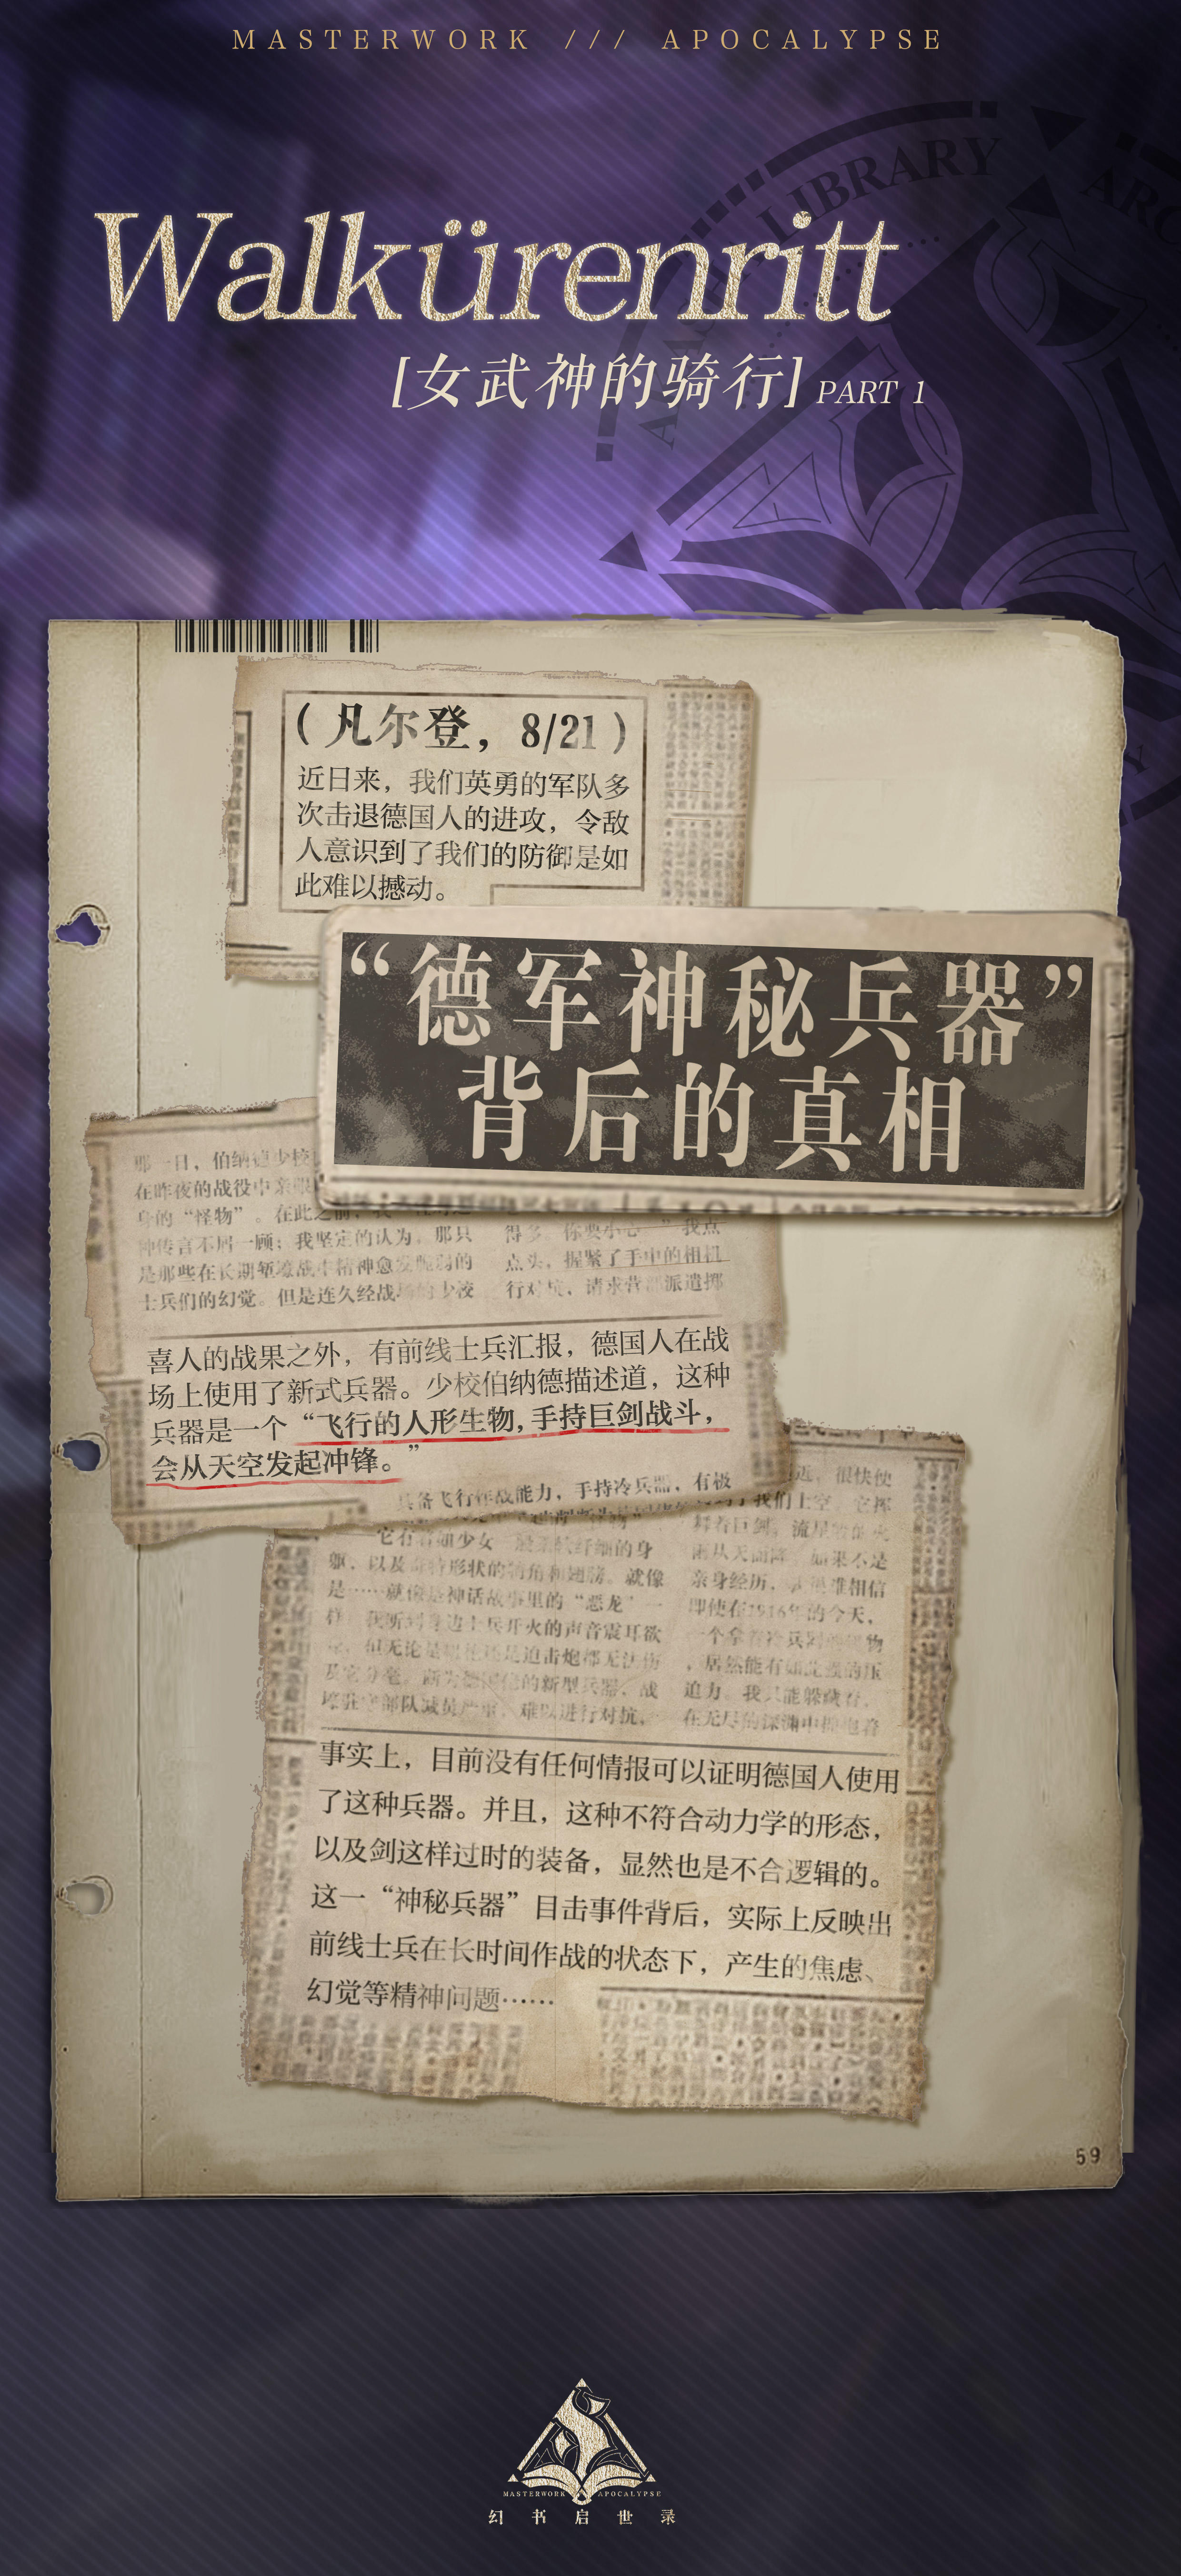 MASTERWORK /// APOCALYPSE
LIBRARY
ARC
Walkürenritt
[女武神的骑行] PART 1
（凡尔登，8/21）
近日来，我们英勇的军队多
次击退德国人的进攻，令敌
人意识到了我们的防御是如
此难以撼动。
“德军神秘兵器”
背后的真相
那一日，伯纳德少校
在昨夜的战役中亲眼
身的“怪物”。在此之前，我
神传言不屑一顾；我坚定的认为，那只
是那些在长期堑壕战中精神愈发脆弱的
士兵们的幻觉。但是连久经战场的少校
得多。你要小心…”我点
点头，握紧了手中的相机
行对抗，请求营部派遣挪
喜人的战果之外，有前线士兵汇报，德国人在战
场上使用了新式兵器。少校伯纳德描述道，这种
兵器是一个“飞行的人形生物，手持巨剑战斗，
会从天空发起冲锋。”
具备飞行作战能力，手持冷兵器，有极
它有着如少女一般柔软纤细的身
躯，以及奇特形状的犄角和翅膀。就像
是……就像是神话故事里的“恶龙”一
样。我听到身边士兵开火的声音震耳欲
但无论是
还是迫击炮都无法伤
及它分毫。
的新型兵器，战
壕驻守部队减员严重，难以进行对抗，
远，很快便
我们上空。它挥
舞着巨剑，流星般的火
雨从天而降。如果不是
亲身经历，
难相信
即使在1916年的今天，
一个拿着冷兵器的怪物
，居然能有如此强的压
迫力。我只能躲藏着，
在无尽的深渊中
事实上，目前没有任何情报可以证明德国人使用
了这种兵器。并且，这种不符合动力学的形态，
以及剑这样过时的装备，显然也是不合逻辑的。
这一“神秘兵器”目击事件背后，实际上反映出
前线士兵在长时间作战的状态下，产生的焦虑、
幻觉等精神问题……
59
MASTERWORK APOCALYPSE
幻书启世录